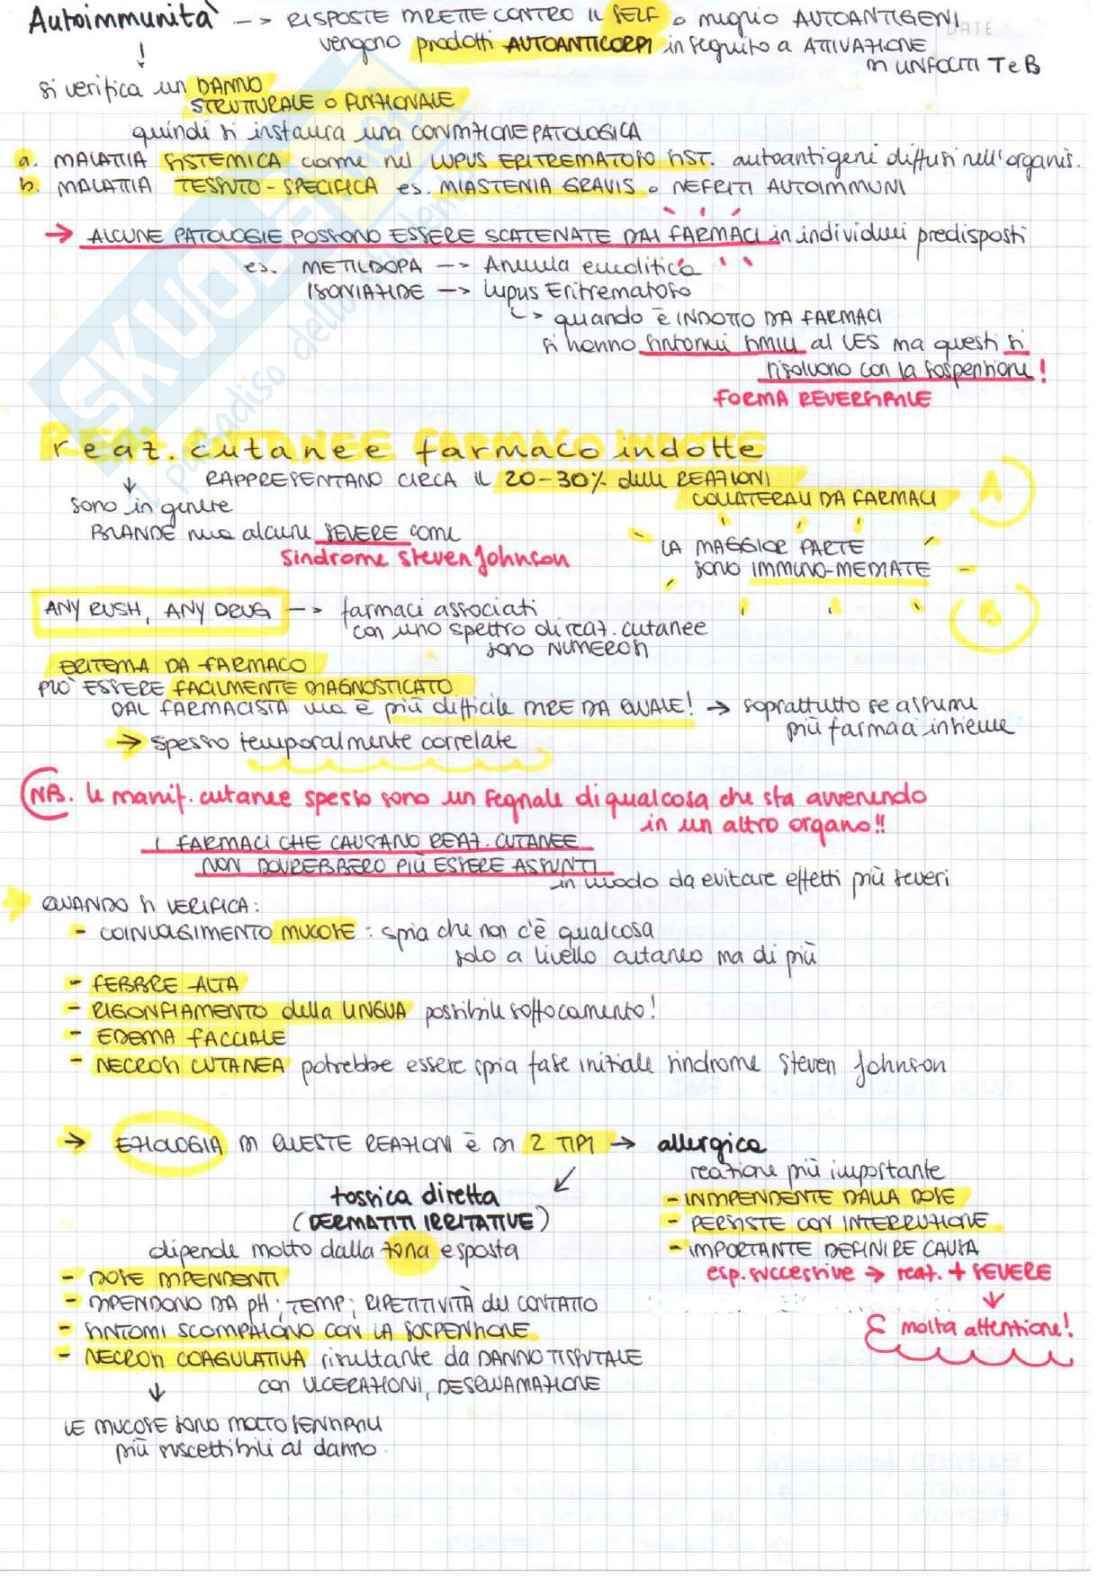 Autoimmunità --> RISPOSTE DIRETTE CONTRO IL SELF o meglio AUTOANTIGENI
vengono prodotti AUTOANTICORPI in seguito a ATTIVAZIONE
DI LINFOCITI T e B
si verifica un DANNO
STRUTTURALE O FUNZIONALE
quindi si instaura una CONDIZIONE PATOLOGICA
a. MALATTIA SISTEMICA come nel LUPUS ERITREMATOSO SIST. autoantigeni diffusi nell'organis.
b. MALATTIA TESSUTO-SPECIFICA es. MIASTENIA GRAVIS o NEFRITI AUTOIMMUNI
→ ALCUNE PATOLOGIE POSSONO ESSERE SCATENATE DAI FARMACI in individui predisposti
es. METILDOPA --> Anemia emolitica
ISONIAZIDE --> Lupus Eritrematoso
↳ quando è INDOTTO DA FARMACI
si hanno sintomi SIMILI al LES ma questi si
risolvono con la sospensione!
FORMA REVERSIBILE
reaz. cutanee farmaco indotte
RAPPRESENTANO CIRCA IL 20-30% delle REAZIONI
COLLATERALI DA FARMACI
sono in genere
BLANDE ma alcune SEVERE come
Sindrome Steven Johnson
LA MAGGIOR PARTE
SONO IMMUNO-MEDIATE
ANY RUSH, ANY DRUG --> farmaci associati
con uno spettro di reaz. cutanee
sono NUMEROSI
ERITEMA DA FARMACO
PUO' ESSERE FACILMENTE DIAGNOSTICATO
DAL FARMACISTA ma è più difficile DIRE DA QUALE! → soprattutto se assume
più farmaci insieme
→ spesso temporalmente correlate
NB. le manif. cutanee spesso sono un segnale di qualcosa che sta avvenendo
in un altro organo!!
I FARMACI CHE CAUSANO REAZ. CUTANEE
NON DOVREBBERO PIÙ ESSERE ASSUNTI
in modo da evitare effetti più severi
→ QUANDO SI VERIFICA:
- COINVOLGIMENTO MUCOSE: spia che non c'è qualcosa
solo a livello cutaneo ma di più
- FEBBRE ALTA
- RIGONFIAMENTO della LINGUA possibile soffocamento!
- EDEMA FACCIALE
- NECROSI CUTANEA potrebbe essere spia fase iniziale sindrome Steven Johnson
→ EZIOLOGIA DI QUESTE REAZIONI È DI 2 TIPI → allergica
reazione più importante
- INDIPENDENTE DALLA DOSE
- PERSISTE CON INTERRUZIONE
- IMPORTANTE DEFINIRE CAUSA
esp. successive → reaz. + SEVERE
E molta attenzione!
tossica diretta
(DERMATITI IRRITATIVE)
dipende molto dalla zona esposta
- DOSE DIPENDENTI
- DIPENDONO DA pH; TEMP; RIPETITIVITÀ del CONTATTO
- SINTOMI SCOMPAIONO CON LA SOSPENSIONE
- NECROSI COAGULATIVA risultante da DANNO TISSUTALE
con ULCERAZIONI, DESQUAMAZIONE
LE MUCOSE SONO MOLTO SENSIBILI
più suscettibili al danno.
SKUOLA.net
il paradiso dello studente
DATE